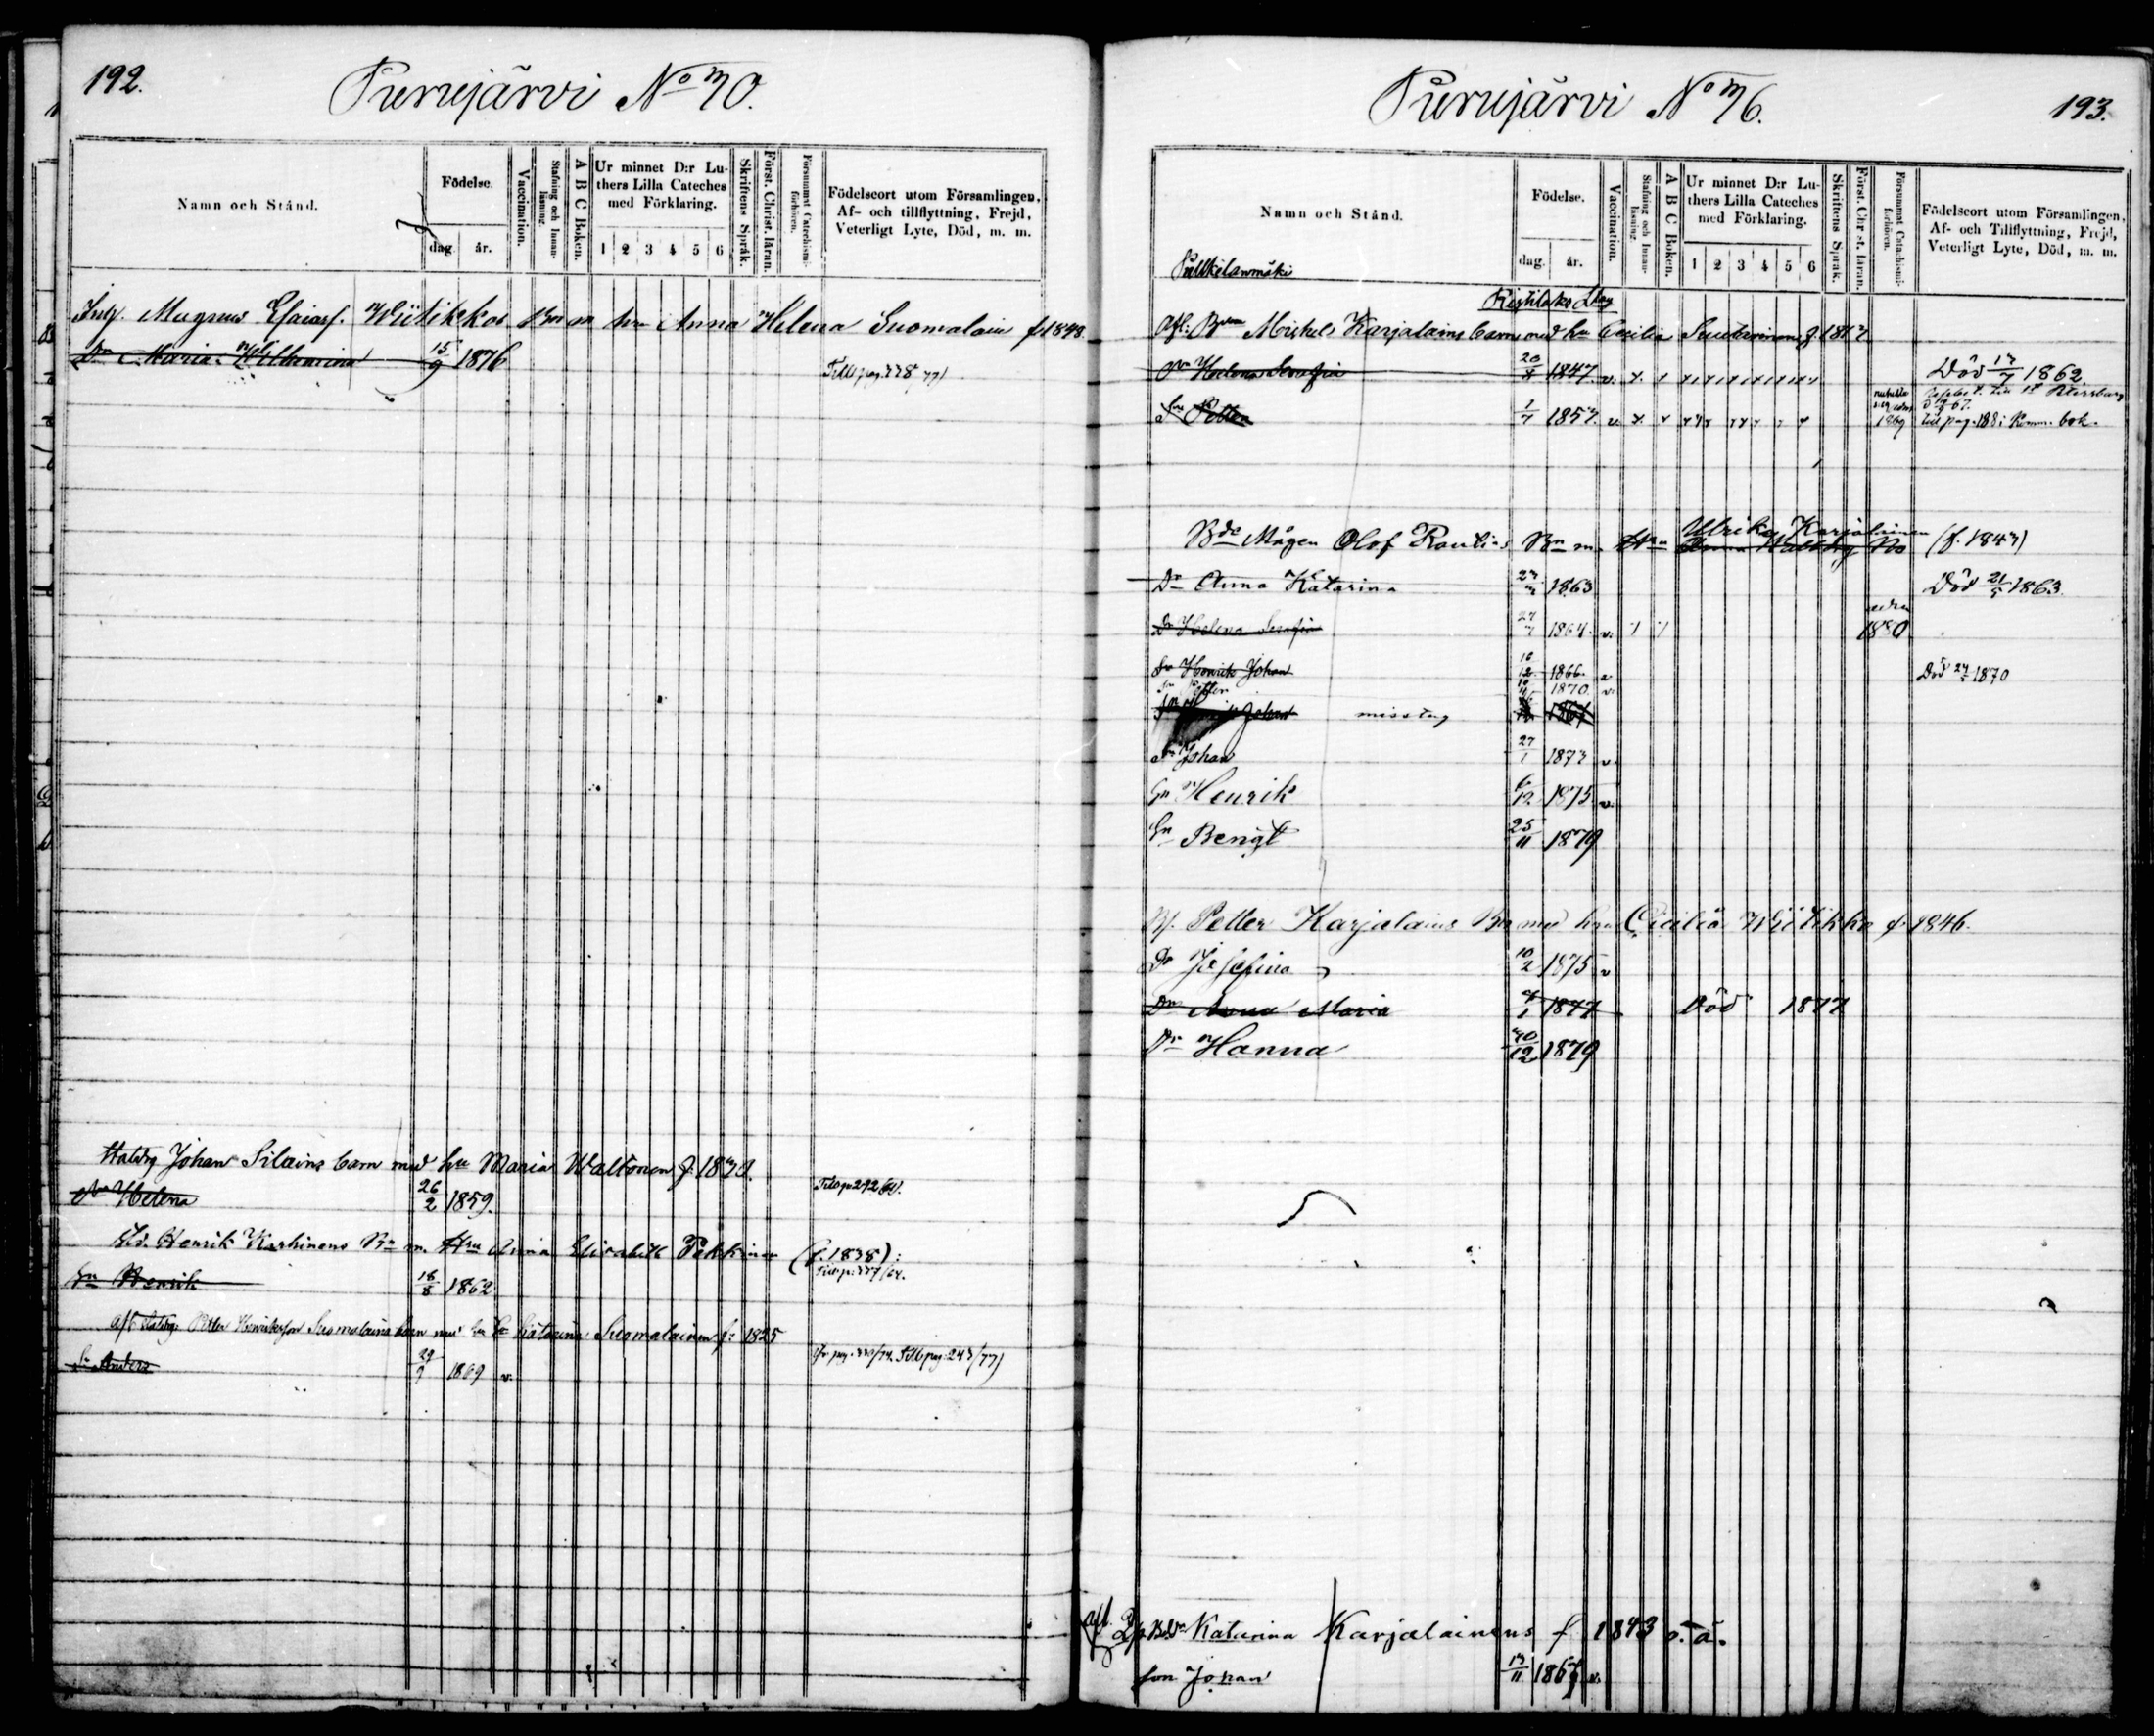 192.
Purujärvi No 70.
Namn och Stånd.
Födelse.
dag. år.
Vaccination.
Stafning och Innanläsning.
A B C Boken.
Ur minnet D:r Luthers Lilla Cateches med Förklaring.
1 2 3 4 5 6
Skriftens Språk.
Först. Christ. läran.
Försummat Catechismiförhören.
Födelseort utom Församlingen, Af- och tillflyttning, Frejd, Veterligt Lyte, Död, m. m.
Inhy. Magnus Esaiasf. Wiitikkos Bn m hu Anna Helena Suomalain f. 1843.
Dr Maria Wilhelmina 15/9 1876
Hatdrg Johan Silains barn med hu Maria Waltonen f. 1830.
Dr Helena 26/2 1859.
Henrik Karhinens Bn m. Hu Anna Elisabeth Pekkinen (f. 1838):
Sn Henrik 18/8 1862
Petter Henriksson Suomalains barn med hu Katarina Suomalainen f: 1825
Sn Anders 29/9 1869 v.
Purujärvi No 76.
193.
Namn och Stånd.
Födelse.
dag. år.
Vaccination.
Stafning och Innanläsning.
A B C Boken.
Ur minnet D:r Luthers Lilla Cateches med Förklaring.
1 2 3 4 5 6
Skriftens Språk.
Först. Christ. läran.
Försummat Catechismiförhören.
Födelseort utom Församlingen, Af- och Tillflyttning, Frejd, Veterligt Lyte, Död, m. m.
Afl: Bdn Michels Karjalains barn med hu Cecilia f. 1817
Dr Helena Serafia 20/8 1847. v. Död 17/7 1862.
Sn Petter 1/7 1857. v. 1869 till pag. 188 i Komm. bok.
Bde Mågen Olof Rautias Bn m. Hu Ulrika Karjalainen (f. 1843)
Dr Anna Katarina 1863 Död 21/5 1863.
Dr Helena Serafia 1864. v. 1880
Sn Henrik Johan 16/12 1866. v Död 1870
Sn Petter 1870. v.
Johan misstag
Sn Johan 27/1 1873 v.
Sn Henrik 6/12 1875 v.
Sn Bengt 25/11 1879
Petter Karjalains Bn med hu Cicilia Wiitikko f. 1846.
Dr Josefina 10/2 1875 v
Dr Anna Maria 1877 Död 1877
Dr Hanna 30/12 1879
Afl. Katarina Karjalainens f 1843 o. ä.
son Johan 13/11 v.